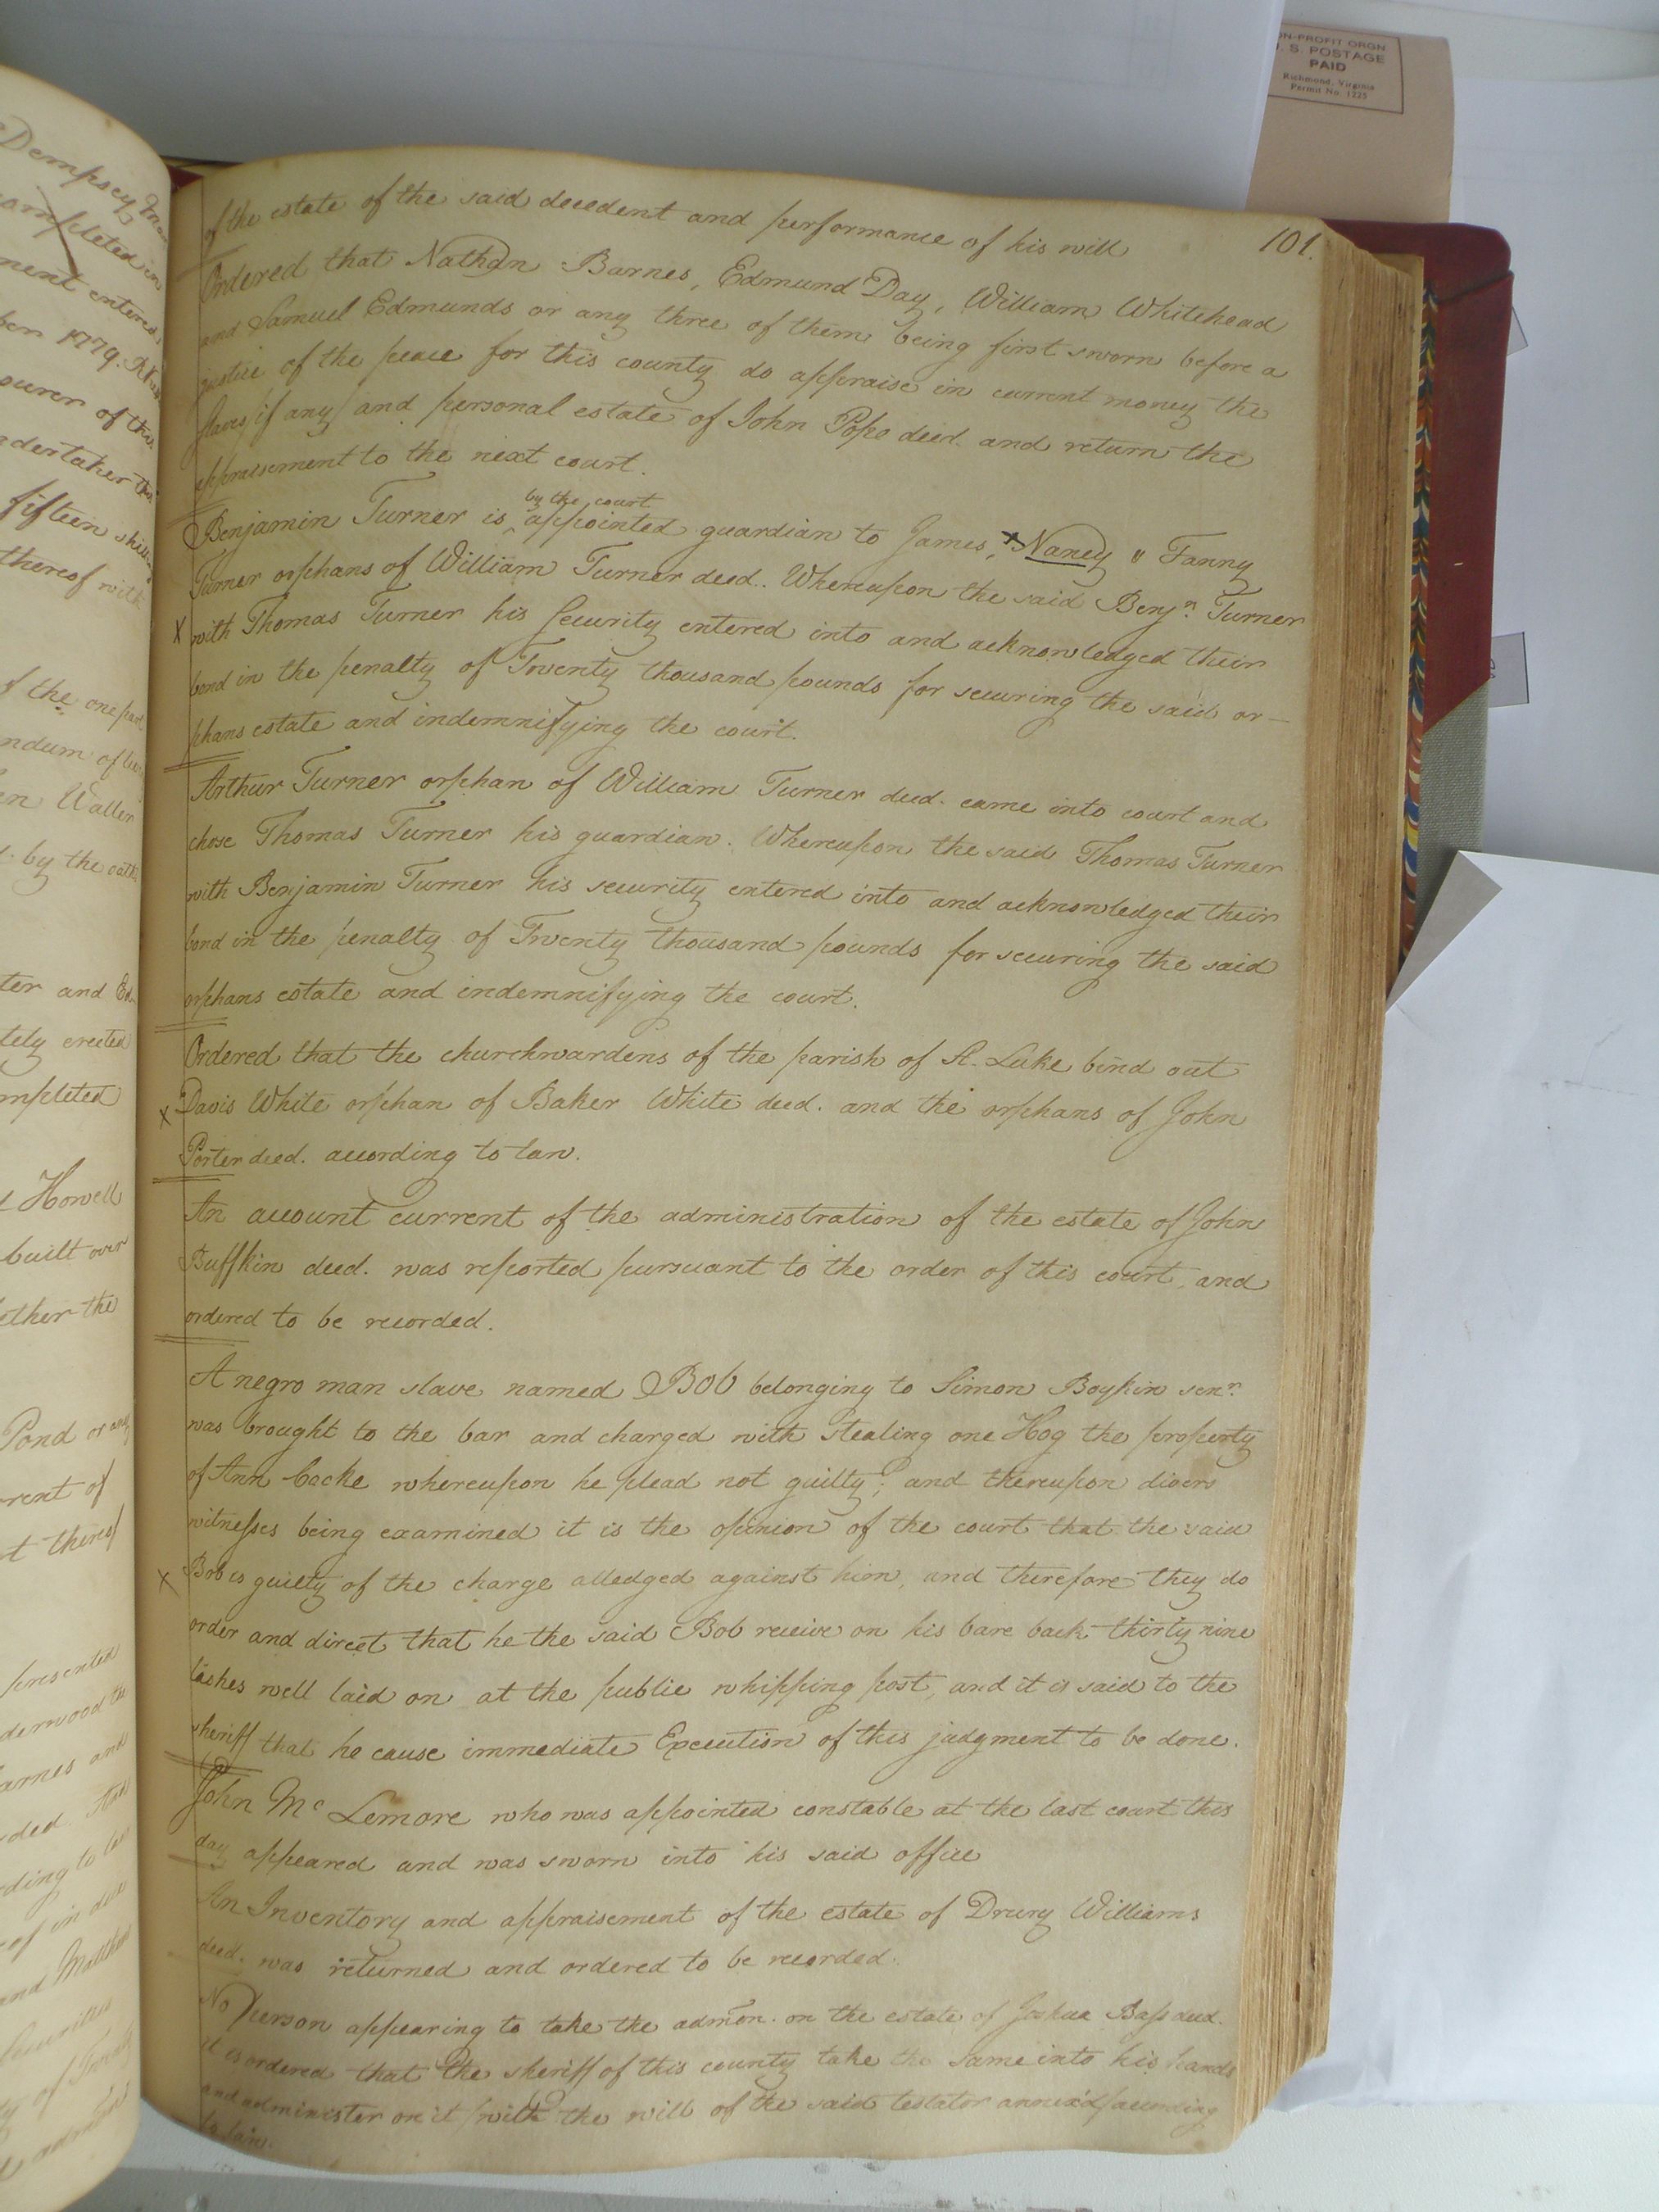 ON-PROFIT ORGN
U. S. POSTAGE
PAID
Richmond, Virginia
Permit No. 1225
101.
of the estate of the said decedent and performance of his will
Ordered that Nathan Barnes, Edmund Day, William Whitehead
and Samuel Edmunds or any three of them being first sworn before a
justice of the peace for this county do appraise in current money the
slaves (if any) and personal estate of John Pope decd. and return the
appraisement to the next court.
Benjamin Turner is ^ by the court appointed guardian to James, + Nancy " Fanny
Turner orphans of William Turner decd.. Whereupon the said Benjn. Turner
X with Thomas Turner his Security entered into and acknowledged their
bond in the penalty of Twenty thousand pounds for securing the said or-
phans estate and indemnifying the court.
Arthur Turner orphan of William Turner decd. came into court and
chose Thomas Turner his guardian. Whereupon the said Thomas Turner
with Benjamin Turner his security entered into and acknowledged their
bond in the penalty of Twenty thousand pounds for securing the said
orphans estate and indemnifying the court.
Ordered that the churchwardens of the parish of St. Luke bind out
x Davis White orphan of Baker White decd. and the orphans of John
Porter decd. according to law.
An account current of the administration of the estate of John
Buffkin decd. was reported pursuant to the order of this court, and
ordered to be recorded.
A negro man slave named Bob belonging to Simon Boykin senr.
was brought to the bar and charged with stealing one Hog the property
of Ann Cocke whereupon he plead not guilty; and thereupon divers
witnesses being examined it is the opinion of the court that the said
x Bob is guilty of the charge alledged against him, and therefore they do
order and direct that he the said Bob receive on his bare back thirty nine
lashes well laid on at the public whipping post, and it is said to the
sheriff that he cause immediate Execution of this judgment to be done.
John Mc Lemore who was appointed constable at the last court this
day appeared and was sworn into his said office
An Inventory and appraisement of the estate of Drury Williams
decd. was returned and ordered to be recorded.
No person appearing to take the admon. on the estate of Joshua Bass decd.
it is ordered that the sheriff of this county take the same into his hands
and administer on it (with the will of the said testator annexd) according
to law.